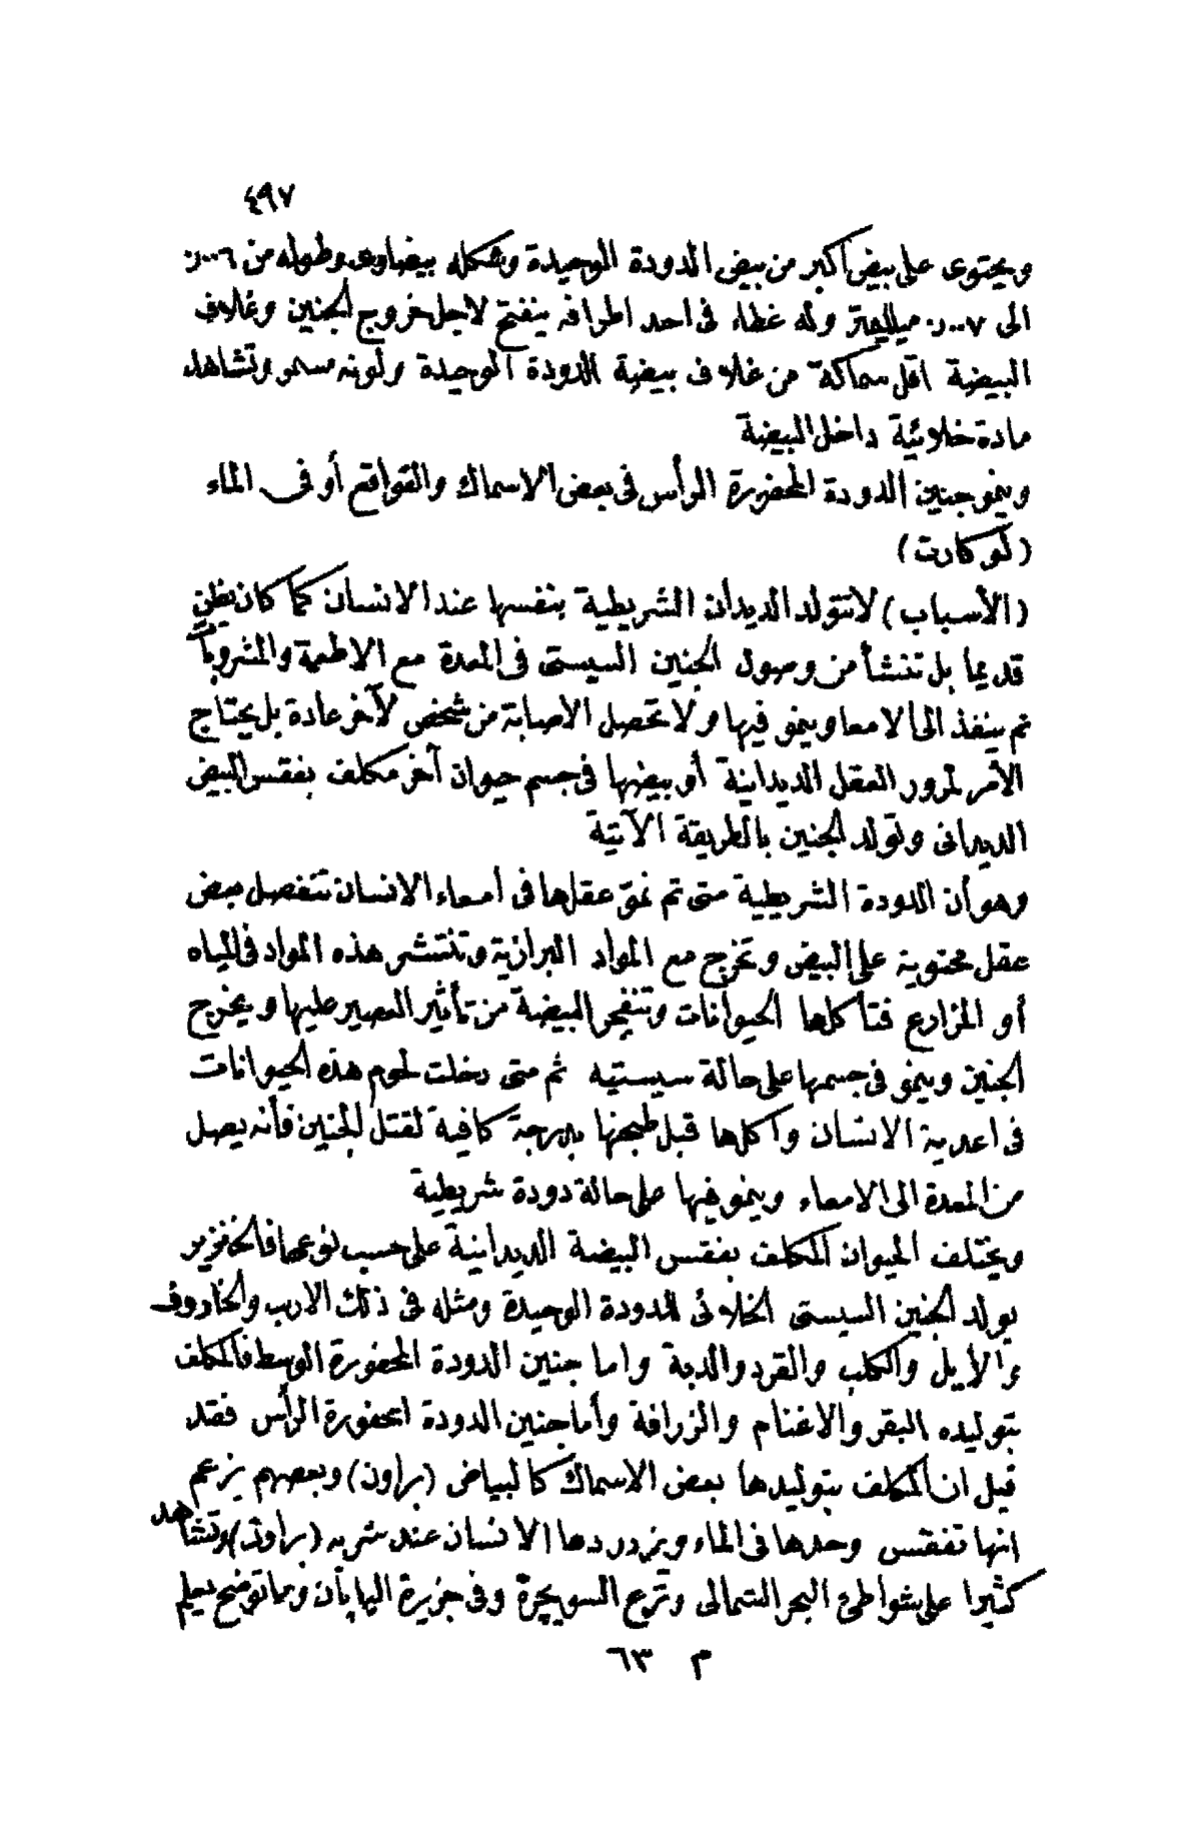 ٤٩٧
ويحتوى على بيض أكبر من بيض الدودة الوحيدة وشكله بيضاوى وطوله من ٠٠٦ر٠
الى ٠٠٧ر٠ ميلليمتر وله غطاء فى احد اطرافه ينفتح لاجل خروج الجنين وغلاف
البيضة اقل سماكة من غلاف بيضة الدودة الوحيدة ولونه مسمر وتشاهد
مادة خلائية داخل البيضة
وينمو جنين الدودة المحفورة الرأس فى بعض الاسماك والقواقع أو فى الماء
(لوكارت)
(الأسباب) لا تتولد الديدان الشريطية بنفسها عند الانسان كما كان يظن
قديما بل تنشأ من وصول الجنين السيستى فى المعدة مع الاطعمة والمشروبات
ثم ينفذ الى الامعا وينمو فيها ولا تحصل الاصابة من شخص لآخر عادة بل يحتاج
الأمر لمرور العقل الديدانية أو بيضها فى جسم حيوان آخر مكلف بفقس البيض
الديدانى وتولد الجنين بالطريقة الآتية
وهو أن الدودة الشريطية متى تم نمو عقلها فى أمعاء الانسان تنفصل بعض
عقل محتوية على البيض وتخرج مع المواد البرازية وتنتشر هذه المواد فى المياه
أو المزارع فتأكلها الحيوانات وتنفجر البيضة من تأثير العصير عليها ويخرج
الجنين وينمو فى جسمها على حالة سيستيه ثم متى دخلت لحوم هذه الحيوانات
فى اغدية الانسان وأكلها قبل طبخها بدرجة كافية لقتل الجنين فأنه يصل
من المعدة الى الامعاء وينمو فيها على حالة دودة شريطية
ويختلف الحيوان المكلف بفقس البيضة الديدانية على حسب نوعها فالخنزير
يولد الجنين السيستى الخلائى للدودة الوحيدة ومثله فى ذلك الارب والخاروف
والأيل والكلب والقرد والدبة واما جنين الدودة المحفورة الوسط فالمكلف
بتوليده البقر والاغنام والزرافة وأما جنين الدودة المحفورة الرأس فقد
قيل ان المكلف بتوليدها بعض الاسماك كالبياض (براون) وبعضهم يزعم
انها تفقس وحدها فى الماء ويزدردها الانسان عند شربه (براون) وتشاهد
كثيرا على شواطئ البحر الشمالى وترع السويچرة وفى جزيرة اليابان ومما توضح يعلم
م ٦٣